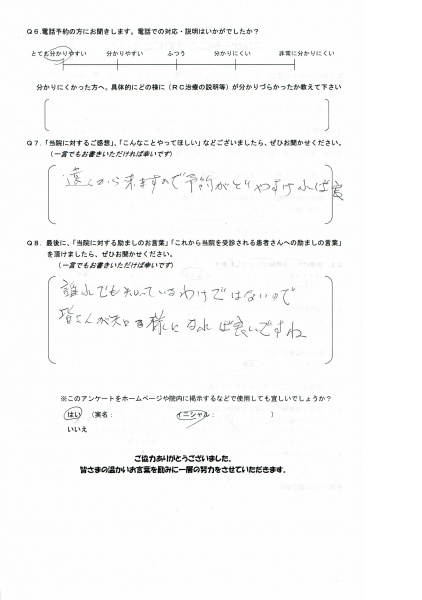 Q6.電話予約の方にお聞きします。電話での対応・説明はいかがでしたか?
とても分かりやすい 分かりやすい ふつう 分かりにくい 非常に分かりにくい
分かりにくかった方へ。具体的にどの様に(RC治療の説明等)が分かりづらかったか教えて下さい
Q7.「当院に対するご感想」、「こんなことやってほしい」などございましたら、ぜひお聞かせください。
(一言でもお書きいただければ幸いです)
遠くから来ますので予約がとりやすければ良
Q8.最後に、「当院に対する励ましのお言葉」「これから当院を受診される患者さんへの励ましの言葉」
を頂けましたら、ぜひお聞かせください。
(一言でもお書きいただけば幸いです)
誰れでも知っているわけではないので
皆さんが知る様になれば良いですね
※このアンケートをホームページや院内に掲示するなどで使用しても宜しいでしょうか?
はい (実名: イニシャル: )
いいえ
ご協力ありがとうございました。
皆さまの温かいお言葉を励みに一層の努力をさせていただきます。